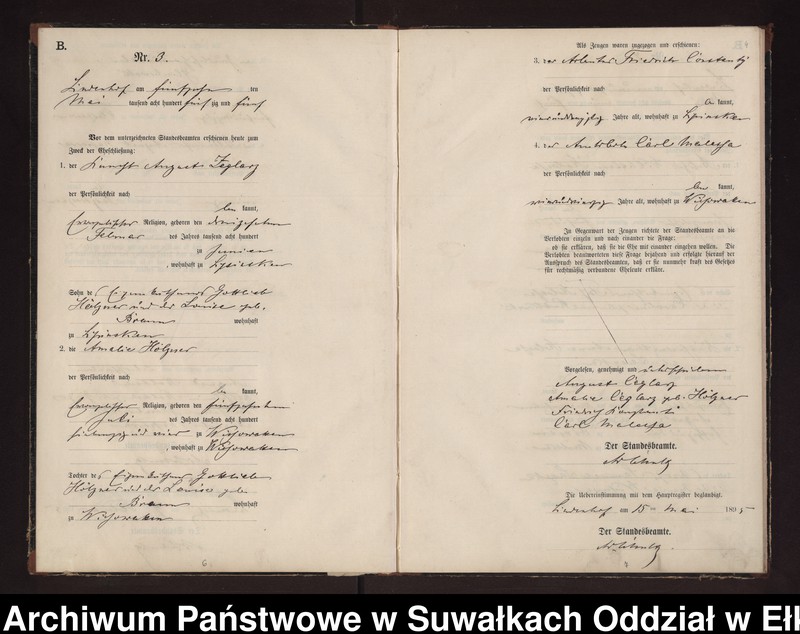 B.
Nr. 3.
Lindenhof am fünfzehn ten
Mai tausend acht hundert fünf zig und fünf
Vor dem unterzeichneten Standesbeamten erschienen heute zum
Zweck der Eheschließung:
1. der Knecht August Zeglarz
der Persönlichkeit nach
be kannt,
Evangelischer Religion, geboren den dreizehnten
Februar des Jahres tausend acht hundert
zu
, wohnhaft zu Lipinsken
Sohn des Eigenkäthners Gottlieb
Hölzner und der Louise geb.
Braun wohnhaft
zu Lipinsken
2. die Amalie Hölzner
der Persönlichkeit nach
be kannt,
Evangelischer Religion, geboren den fünfzehnten
Juli des Jahres tausend acht hundert
siebenzig und vier zu Wissowaten
, wohnhaft zu Wissowaten
Tochter des Eigenkäthners Gottlieb
Hölzner und der Louise geb.
Braun wohnhaft
zu Wissowaten
Als Zeugen waren zugezogen und erschienen:
3. der Arbeiter Friedrich
der Persönlichkeit nach
be kannt,
Jahre alt, wohnhaft zu Lipinsken
4. der Amtsbote Carl Malessa
der Persönlichkeit nach
be kannt,
Jahre alt, wohnhaft zu Wissowaten
In Gegenwart der Zeugen richtete der Standesbeamte an die
Verlobten einzeln und nach einander die Frage:
ob sie erklären, daß sie die Ehe mit einander eingehen wollen. Die
Verlobten beantworteten diese Frage bejahend und erfolgte hierauf der
Ausspruch des Standesbeamten, daß er sie nunmehr kraft des Gesetzes
für rechtmäßig verbundene Eheleute erkläre.
Vorgelesen, genehmigt und unterschrieben
August Ceglarz
Amalie Ceglarz geb. Hölzner
Friedrich
Carl Malessa
Der Standesbeamte.
Die Uebereinstimmung mit dem Hauptregister beglaubigt.
Lindenhof am 15ten Mai 1895
Der Standesbeamte.
Archiwum Państwowe w Suwałkach Oddział w Ełk